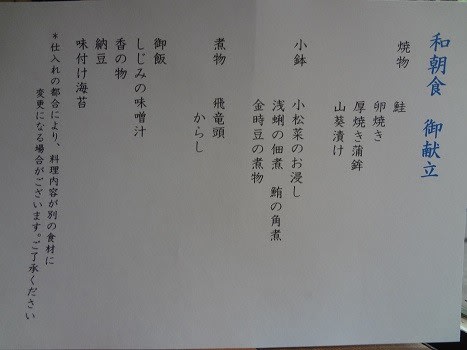 和朝食 御献立
焼物 鮭
卵焼き
厚焼き蒲鉾
山葵漬け
小鉢 小松菜のお浸し
浅蜊の佃煮 鮪の角煮
金時豆の煮物
煮物 飛竜頭
からし
御飯
しじみの味噌汁
香の物
納豆
味付け海苔
＊仕入れの都合により、料理内容が別の食材に
変更になる場合がございます。ご了承ください